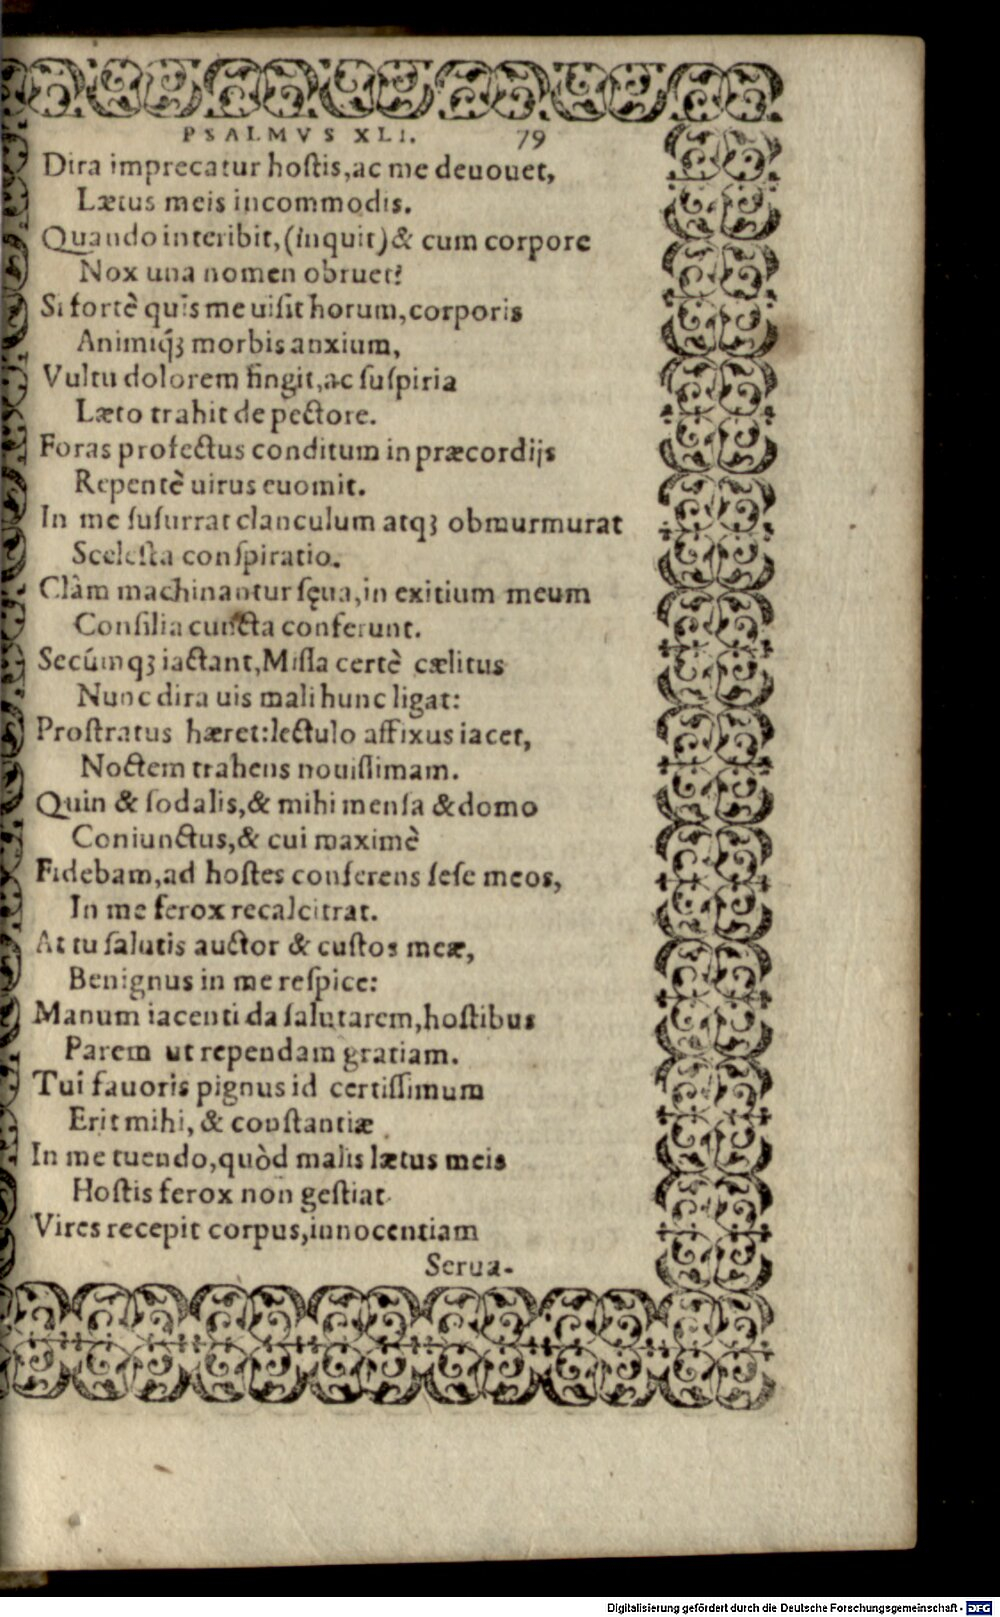 PSALMVS XLI. 79
Dira imprecatur hoſtis, ac me deuouet,
Lætus meis incommodis.
Quando interibit, (inquit) & cum corpore
Nox una nomen obruet?
Si fortè quis me uiſit horum, corporis
Animiq́ꝫ morbis anxium,
Vultu dolorem fingit, ac ſuſpiria
Læto trahit de pectore.
Foras profectus conditum in præcordijs
Repentè uirus euomit.
In me ſuſurrat clanculum atqꝫ obmurmurat
Sceleſta conſpiratio.
Clàm machinantur ſęua, in exitium meum
Conſilia cuncta conferunt.
Secúmqꝫ iactant, Miſſa certè cælitus
Nunc dira uis mali hunc ligat:
Proſtratus hæret: lectulo affixus iacet,
Noctem trahens nouiſſimam.
Quin & ſodalis, & mihi menſa & domo
Coniunctus, & cui maximè
Fidebam, ad hoſtes conferens ſeſe meos,
In me ferox recalcitrat.
At tu ſalutis auctor & cuſtos meæ,
Benignus in me reſpice:
Manum iacenti da ſalutarem, hoſtibus
Parem ut rependam gratiam.
Tui fauoris pignus id certiſſimum
Erit mihi, & conſtantiæ
In me tuendo, quòd malis lætus meis
Hoſtis ferox non geſtiat.
Vires recepit corpus, innocentiam
Serua-
Digitalisierung gefördert durch die Deutsche Forschungsgemeinschaft - DFG